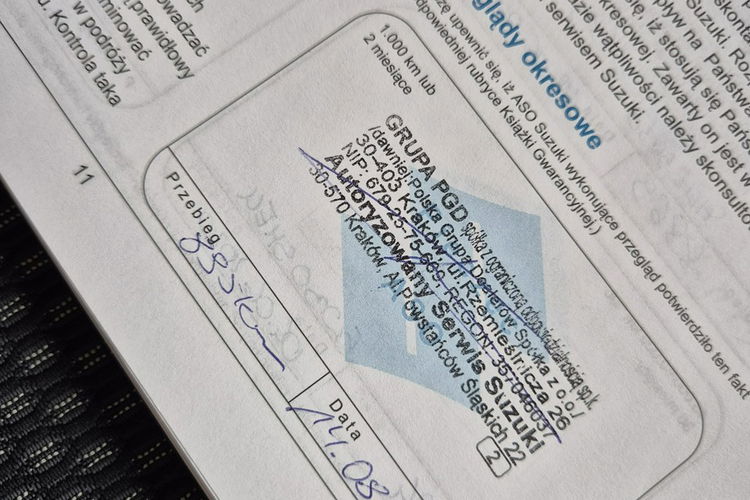 owadzać
minować
w podróży
(prawidłowy
u. Kontrola taka
11
1.000 km lub
2 miesiące
GRUPA PGD spółka z ograniczoną odpowiedzialnością sp.k.
/dawniej:Polska Grupa Dealerów Spółka z o.o./
30-403 Kraków, ul.Rzemieślnicza 26
NIP: 679-25-75-669, REGON: 357046037
Autoryzowany Serwis Suzuki
30-570 Kraków, Al.Powstańców Śląskich 22
2
Przebieg
Data
14.08
glądy okresowe
że upewnić się, iż ASO Suzuki wykonujące przegląd potwierdziło ten fakt
dpowiedniej rubryce Książki Gwarancyjnej.)
serwisem Suzuki.
zie wątpliwości należy skonsultow
kresowej. Zawarty on jest w
się, iż stosują się Pańs
pływ na Państw
Suzuki. Ro